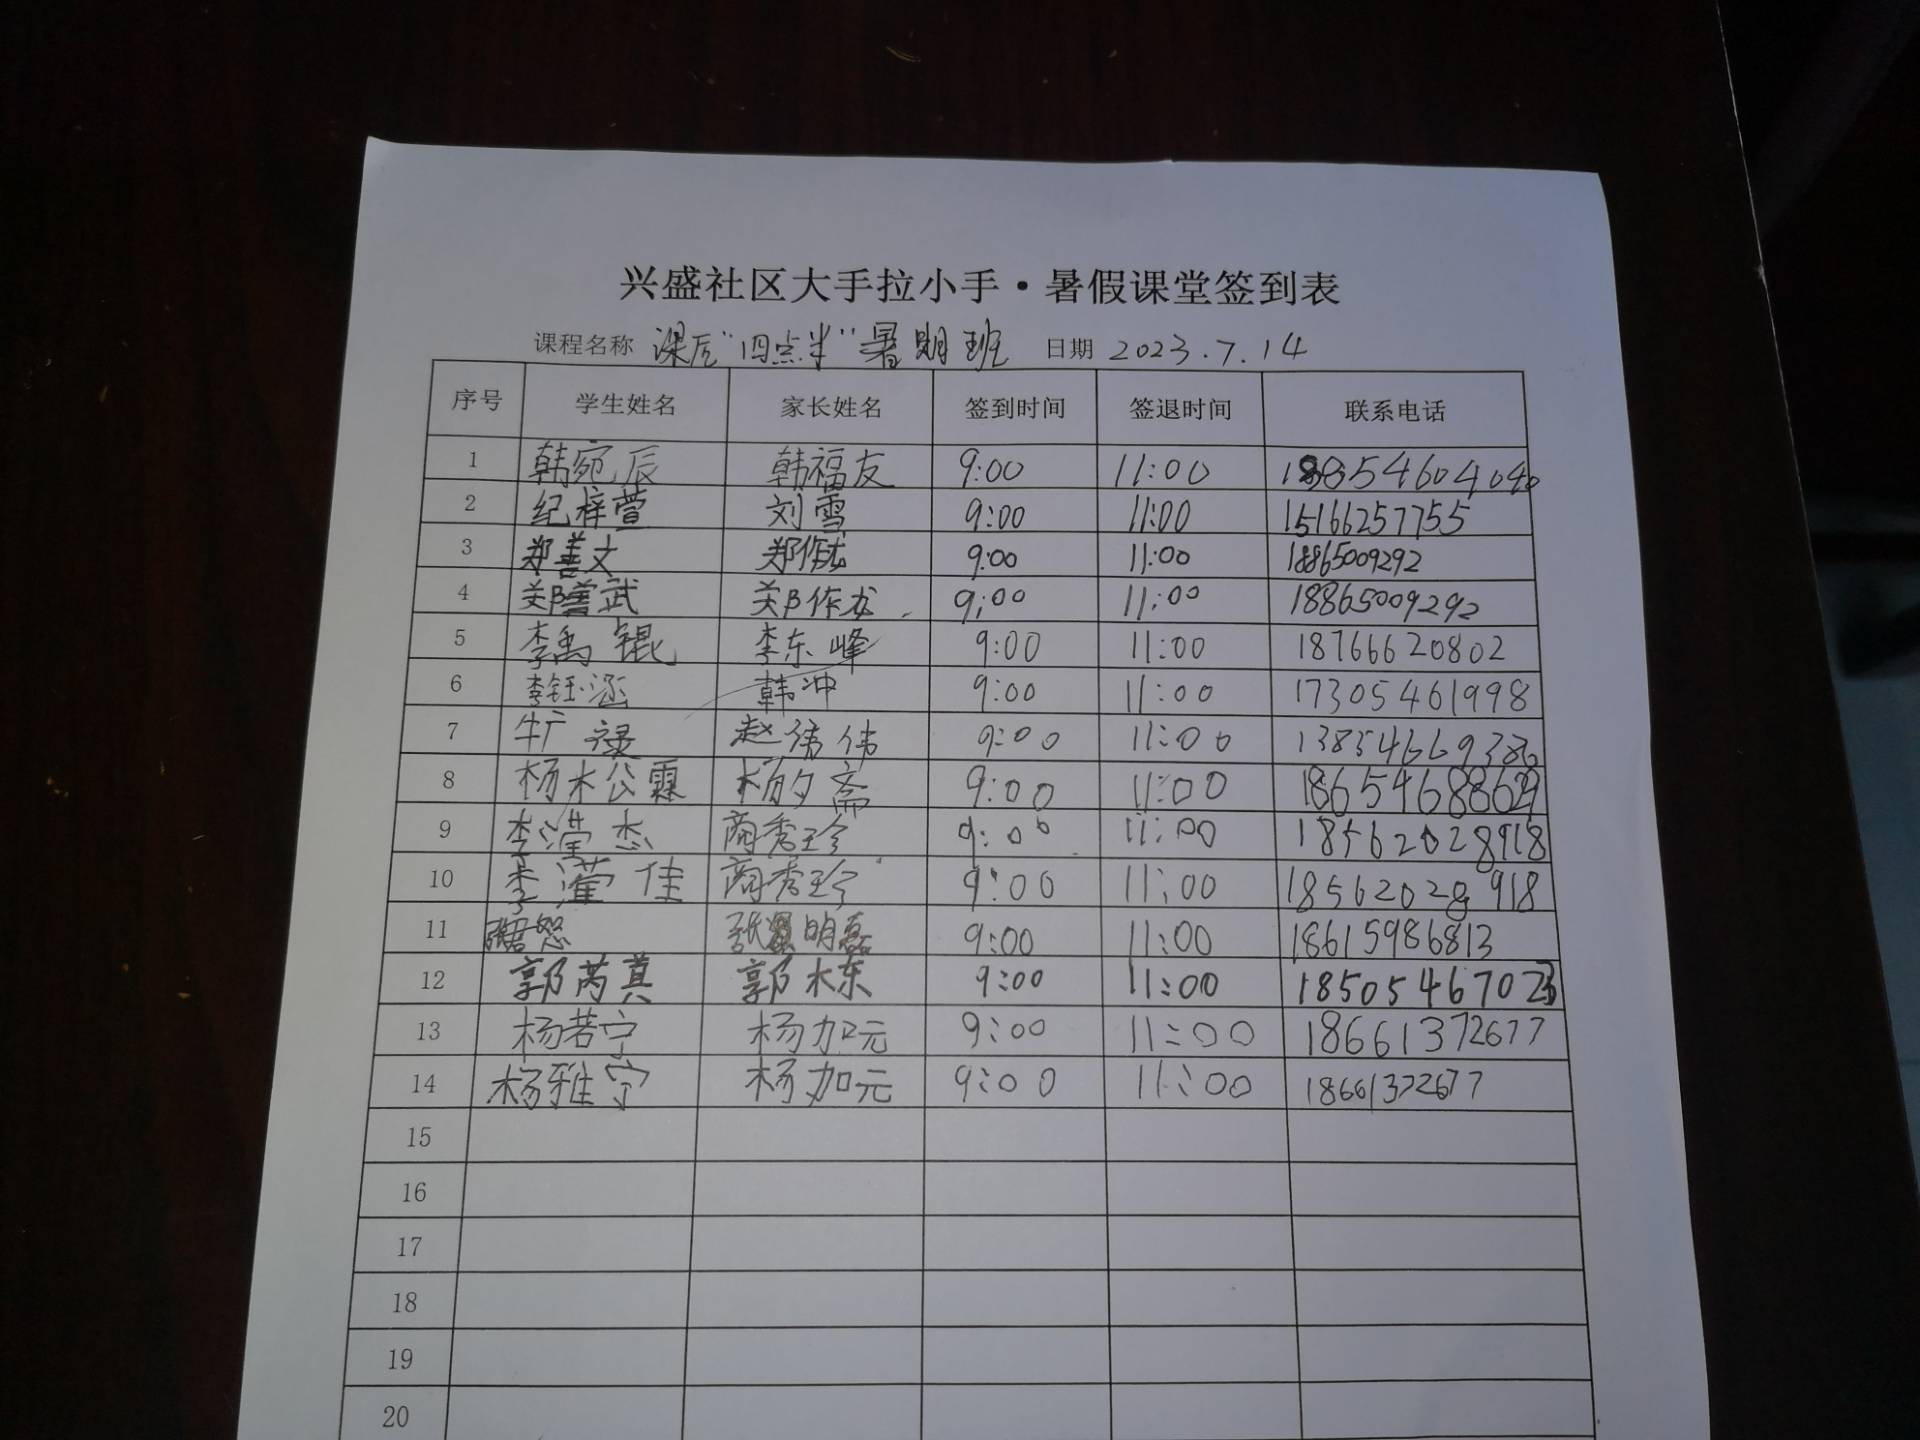 兴盛社区大手拉小手·暑假课堂签到表
课程名称 课后"四点半"暑期班 日期 2023.7.14
序号 学生姓名 家长姓名 签到时间 签退时间 联系电话
1 韩宛辰 韩福友 9:00 11:00 18854604040
2 纪梓萱 刘雪 9:00 11:00 15166257755
3 郑善文 郑作龙 9:00 11:00 18865009292
4 郑善武 郑作龙 9:00 11:00 18865009292
5 李禹锟 李东峰 9:00 11:00 18766620802
6 李钰涵 韩冲 9:00 11:00 17305461998
7 牛广禄 赵伟 9:00 11:00 13854669386
8 杨木公霖 杨 斋 9:00 11:00 18654688629
9 李滢杰 商秀珍 9:00 11:00 18562028918
10 李灌佳 商秀珍 9:00 11:00 18562028918
11 张 明磊 9:00 11:00 18615986813
12 郭芮真 郭木东 9:00 11:00 18505467023
13 杨若宁 杨加元 9:00 11:00 18661372677
14 杨雅宁 杨加元 9:00 11:00 18661372677
15
16
17
18
19
20